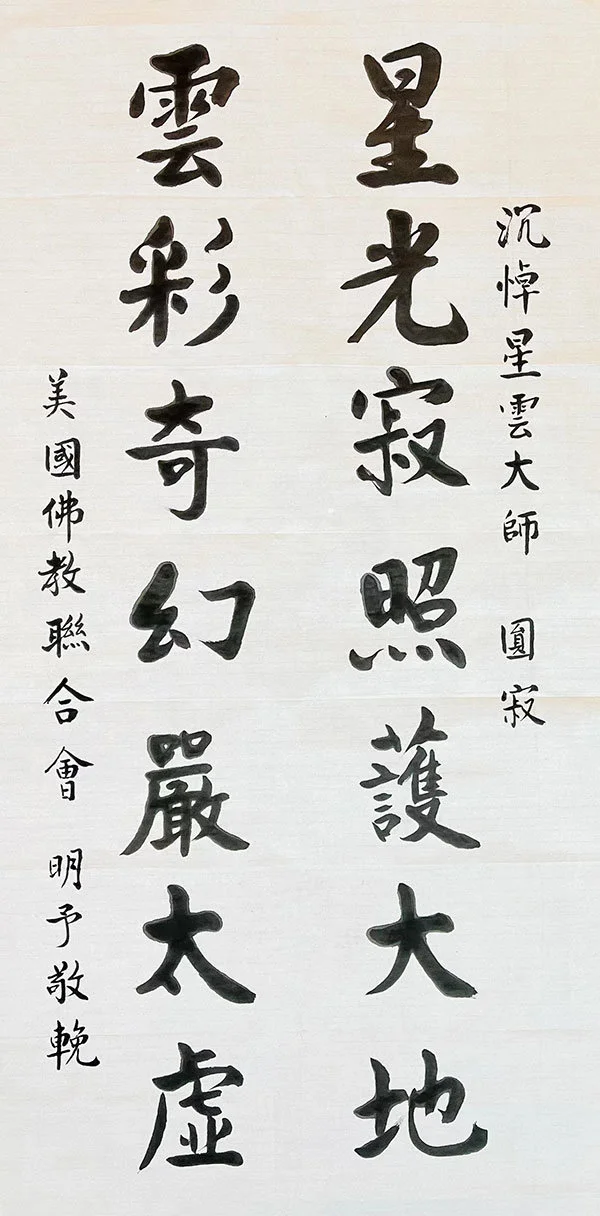 沉悼星雲大師 圓寂
星光寂照護大地
雲彩奇幻嚴太虛
美國佛教聯合會 明予敬輓